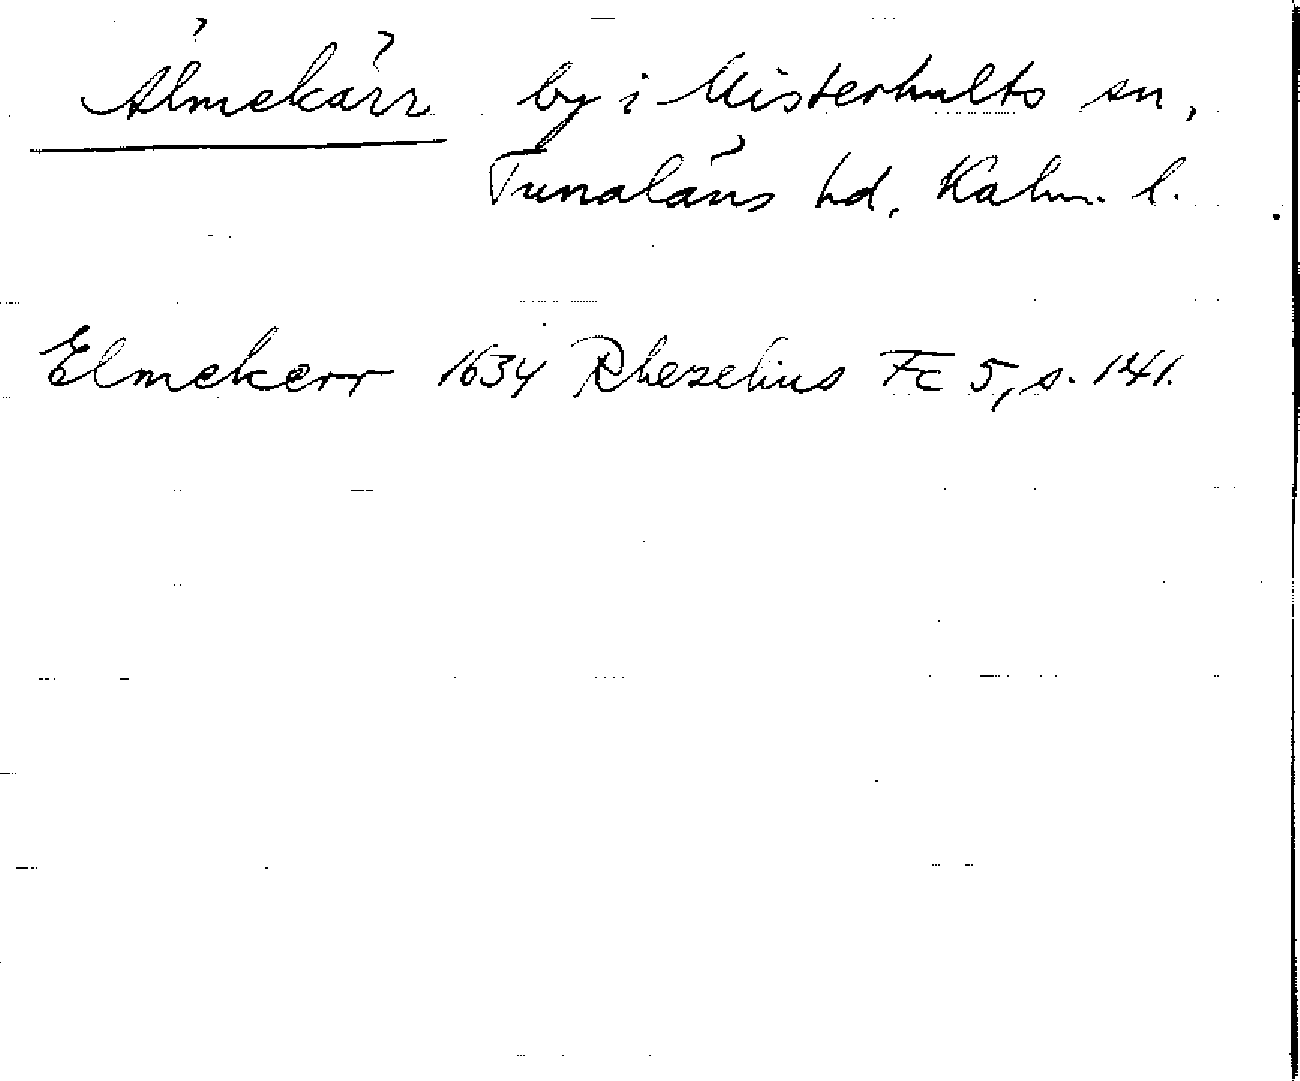 Älmekärr by i Misterhults sn,
Tunaläns hd, Kalm. l.
Elmekerr 1634 Rhezelius Fc 5, s. 141.